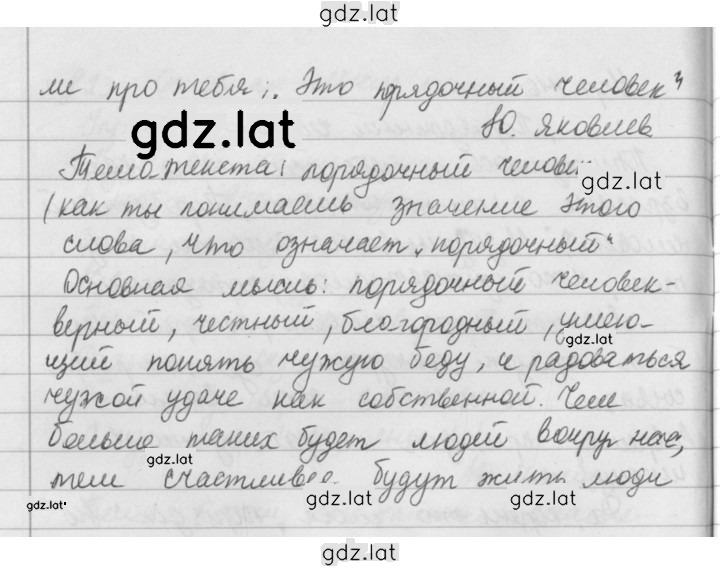 gdz.lat
ли про тебя „Это порядочный человек"
Ю. Яковлев
gdz.lat
Тема текста: порядочный
gdz.lat
(как ты понимаешь значение этого
слова, что означает „порядочный"
Основная мысль: порядочный человек-
верный, честный, благородный, умею-
gdz.lat
щий понять чужую беду, и радоваться
чужой удаче как собственной. Чем
больше таких будет людей вокруг нас,
gdz.lat
тем будут жить люди
gdz.lat
gdz.lat
gdz.lat
gdz.lat